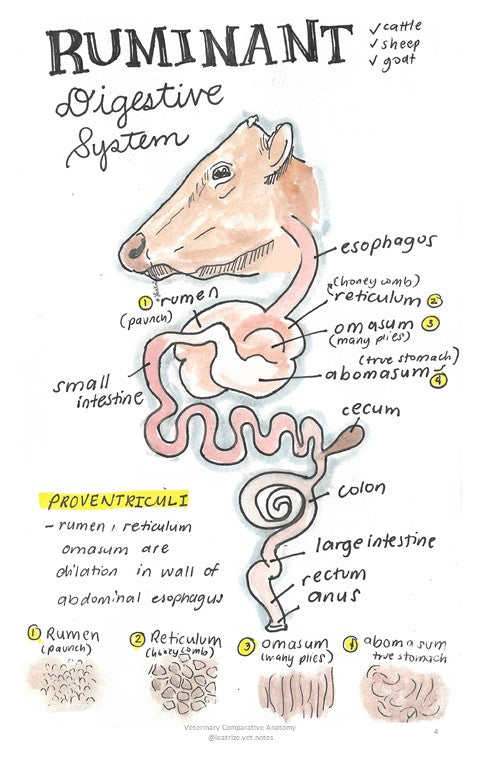 RUMINANT
✓ cattle
✓ sheep
✓ goat
Digestive
System
esophagus
(honey comb)
reticulum 2
1 rumen
(paunch)
omasum 3
(many plies)
(true stomach)
abomasum 4
small
intestine
cecum
colon
PROVENTRICULI
- rumen, reticulum
omasum are
dilation in wall of
abdominal esophagus
large intestine
rectum
anus
1 Rumen
(paunch)
2 Reticulum
(honey comb)
3 omasum
(many plies)
4 abomasum
true stomach
Veterinary Comparative Anatomy
@leatrize.vet.notes
4